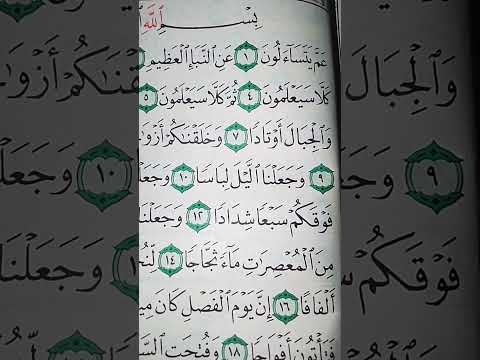 بِسْمِ ٱللَّهِ
عَمَّ يَتَسَآءَلُونَ ١ عَنِ ٱلنَّبَإِ ٱلْعَظِيمِ
كَلَّا سَيَعْلَمُونَ ٤ ثُمَّ كَلَّا سَيَعْلَمُونَ ٥
وَٱلْجِبَالَ أَوْتَادًا ٧ وَخَلَقْنَٰكُمْ أَزْوَٰ
٩ وَجَعَلْنَا ٱلَّيْلَ لِبَاسًا ١٠ وَجَعَ
فَوْقَكُمْ سَبْعًا شِدَادًا ١٢ وَجَعَلْنَا
مِنَ ٱلْمُعْصِرَٰتِ مَآءً ثَجَّاجًا ١٤ لِّنُخْ
أَلْفَافًا ١٦ إِنَّ يَوْمَ ٱلْفَصْلِ كَانَ مِي
فَتَأْتُونَ أَفْوَاجًا ١٨ وَفُتِحَتِ ٱلسَّ